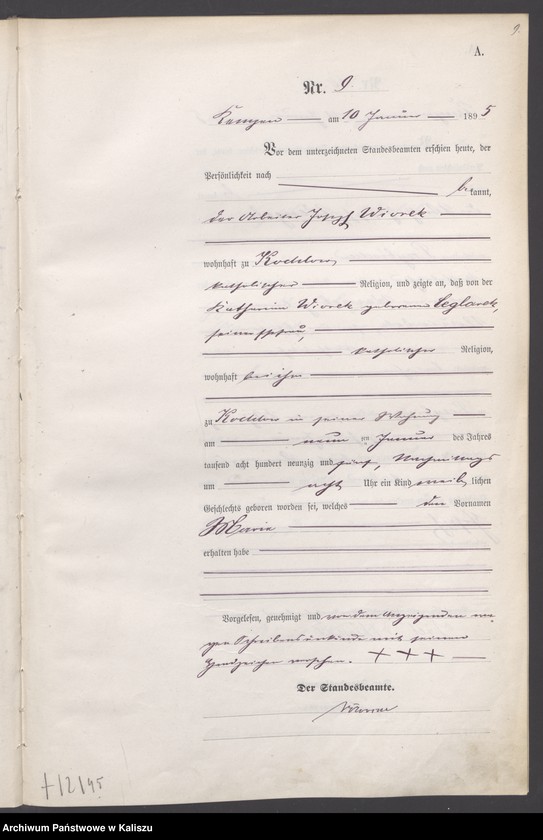 9.
A.
Nr. 9.
Kempen am 10 Januar 1895
Vor dem unterzeichneten Standesbeamten erschien heute, der
Persönlichkeit nach
bekannt,
der Arbeiter Josef Wiorek
wohnhaft zu
katholischer Religion, und zeigte an, daß von der
Katharina Wiorek geborene Ceglarek,
seiner Ehefrau,
katholischer Religion,
wohnhaft bei ihm
zu in seiner Wohnung
am neun ten Januar des Jahres
tausend acht hundert neunzig und fünf, Nachmittags
um acht Uhr ein Kind weiblichen
Geschlechts geboren worden sei, welches den Vornamen
Maria
erhalten habe
Vorgelesen, genehmigt und von dem Anzeigenden we-
gen Schreibensunkunde mit seinem
Handzeichen versehen. + + +
Der Standesbeamte.
Archiwum Państwowe w Kaliszu